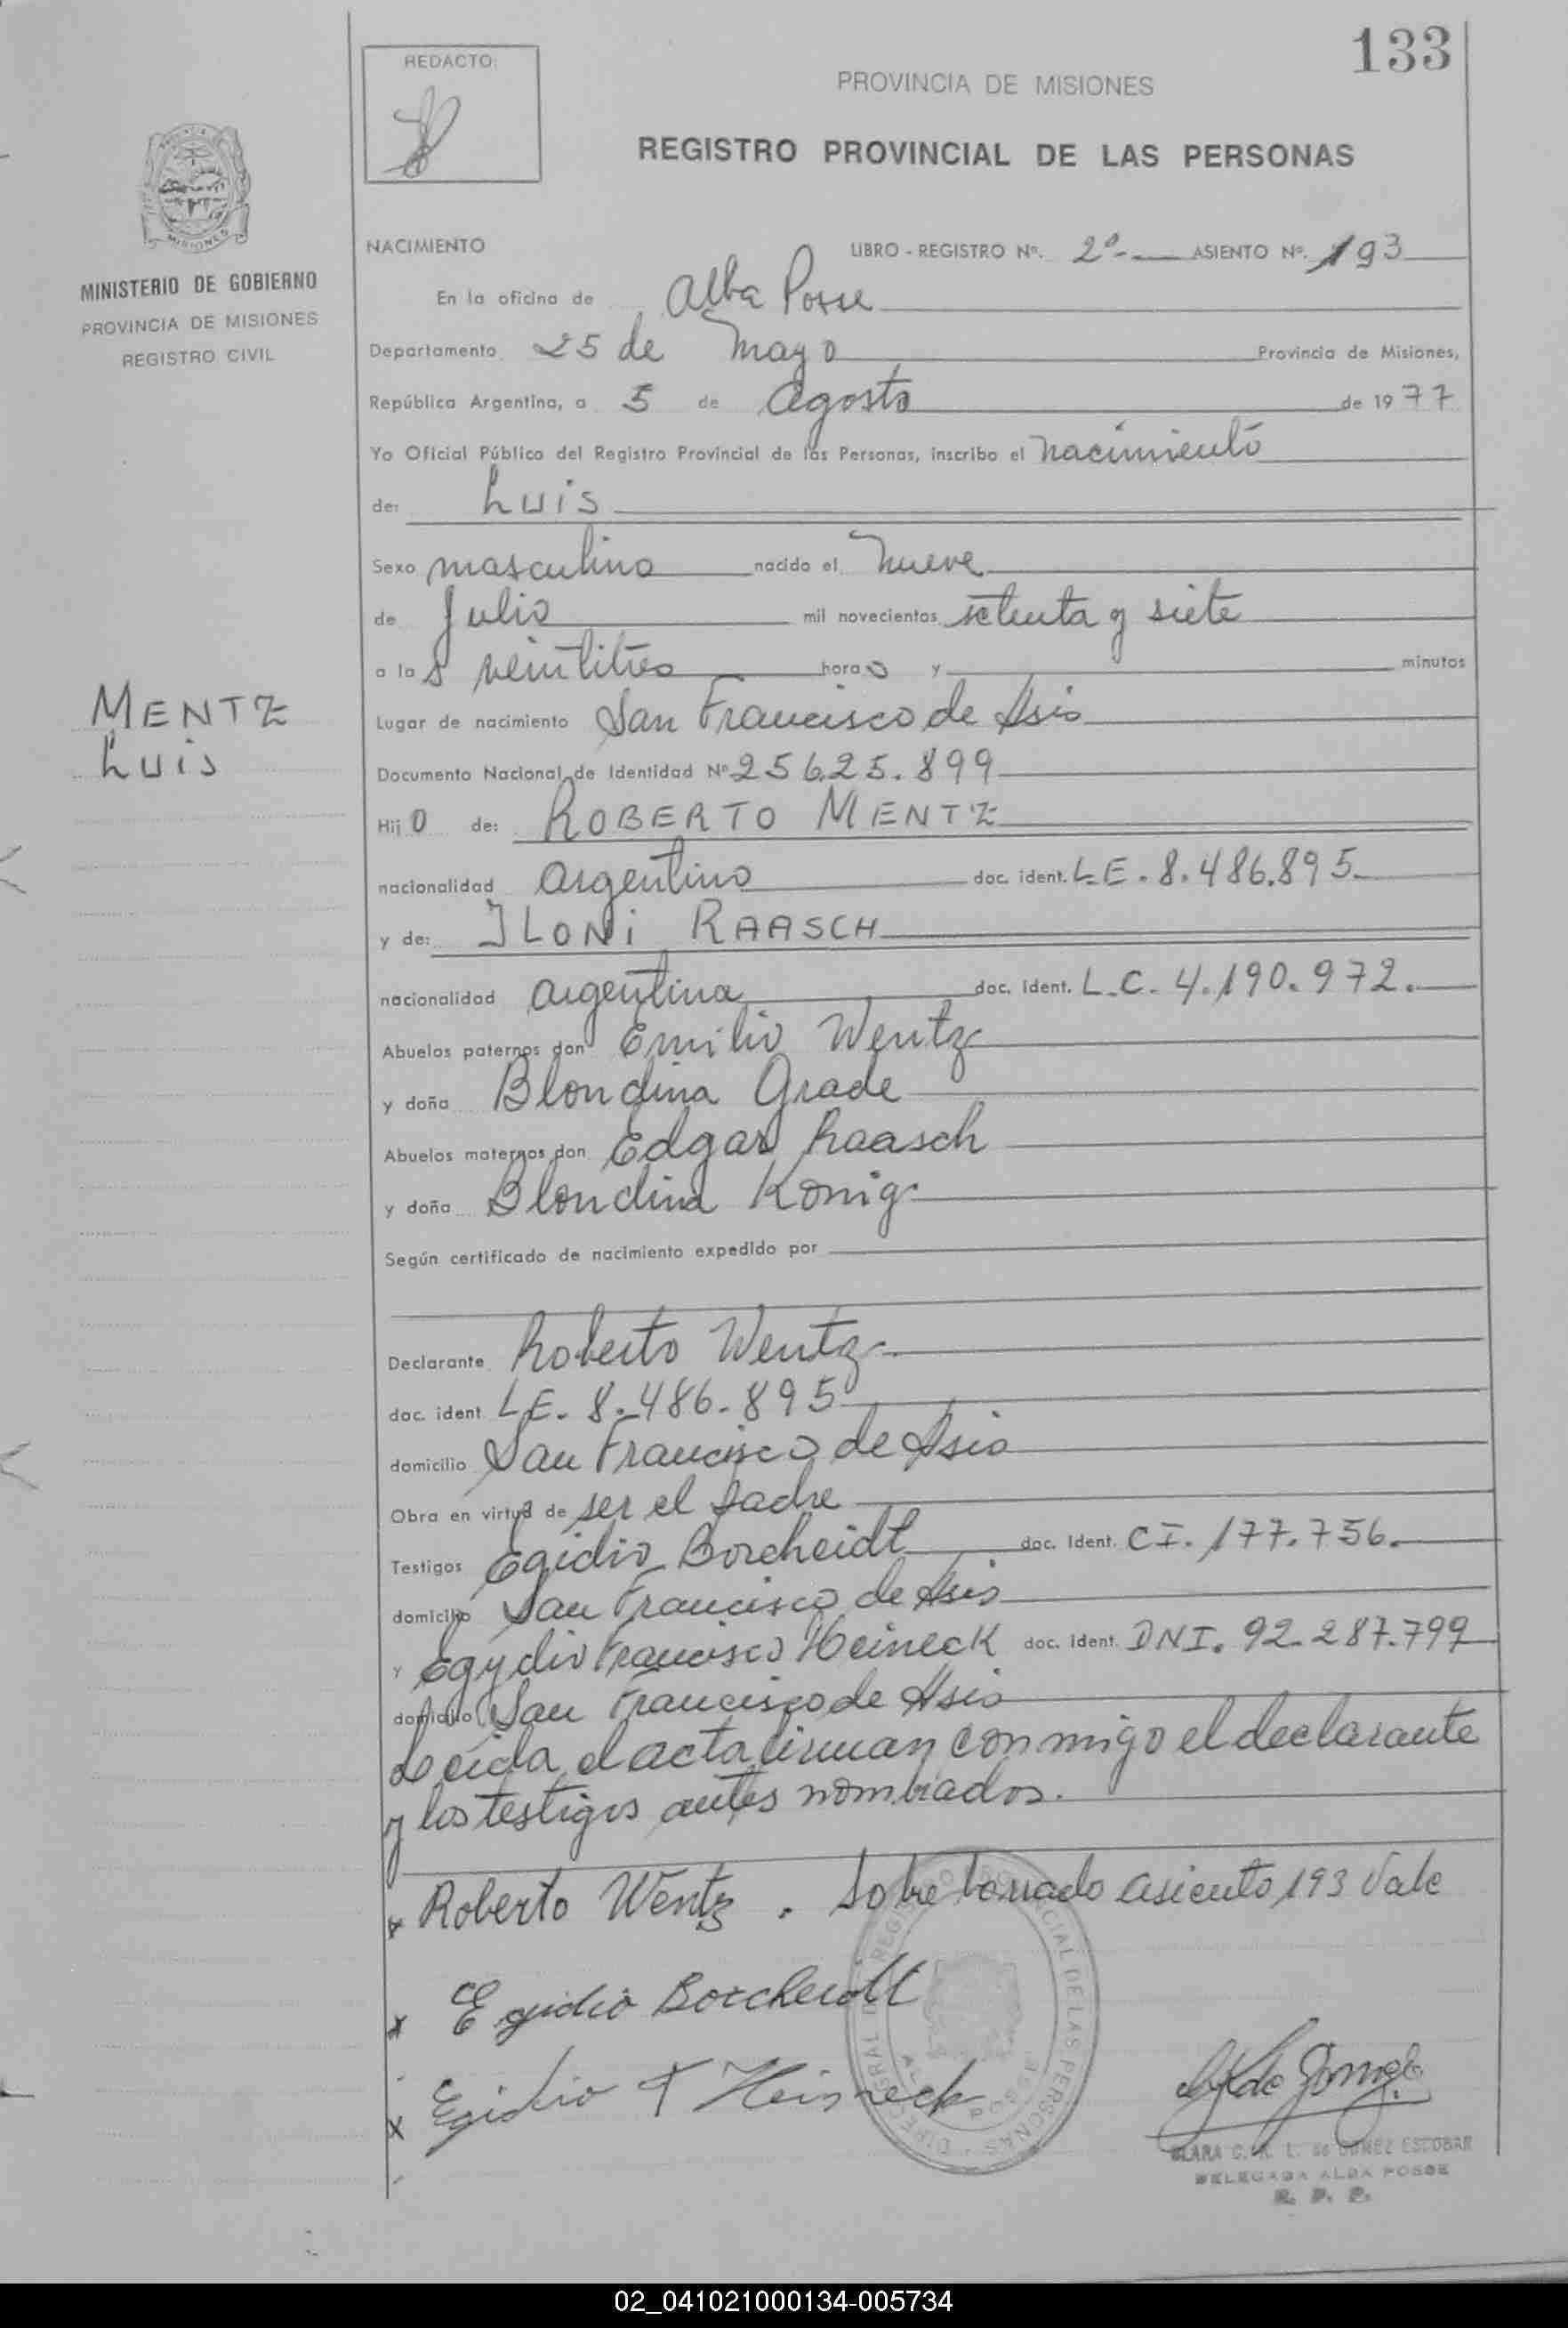 133
REDACTO:
PROVINCIA DE MISIONES
REGISTRO PROVINCIAL DE LAS PERSONAS
MISIONES
MINISTERIO DE GOBIERNO
PROVINCIA DE MISIONES
REGISTRO CIVIL
NACIMIENTO LIBRO - REGISTRO Nº. 2º- ASIENTO Nº. 193
En la oficina de Alba Posse
Departamento 25 de Mayo Provincia de Misiones,
República Argentina, a 5 de Agosto de 1977
Yo Oficial Público del Registro Provincial de las Personas, inscribo el nacimiento
de: Luis
Sexo masculino nacido el nueve
de Julio mil novecientos setenta y siete
a las veintitres horas y minutos
MENTZ
Luis
Lugar de nacimiento San Francisco de Asis
Documento Nacional de Identidad Nº 25625.899
Hijo de: ROBERTO MENTZ
nacionalidad argentino doc. ident. L.E. 8.486.895
y de: ILONi RAASCH
nacionalidad argentina doc. Ident. L.C. 4.190.972.
Abuelos paternos don Emilio Wentz
y doña Blondina Grade
Abuelos maternos don Edgar Raasch
y doña Blondina Konig
Según certificado de nacimiento expedido por
Declarante Roberto Wentz
doc. ident LE. 8.486.895
domicilio San Francisco de Asis
Obra en virtud de ser el padre
Testigos Egidio Borcheidt doc. Ident. CI. 177.756.
domicilio San Francisco de Asis
y Egydio Francisco Heineck doc. Ident. DNI. 92.287.799
domicilio San Francisco de Asis
Leida el acta firman conmigo el declarante
y los testigos antes nombrados.
Roberto Wentz . Sobre borrado asiento 193 Vale
Egidio Borcheidt
Egidio F Heineck
CLARA C. L. de GOMEZ ESCOBAR
DELEGADA ALBA POSSE
R. P. P.
02_041021000134-005734